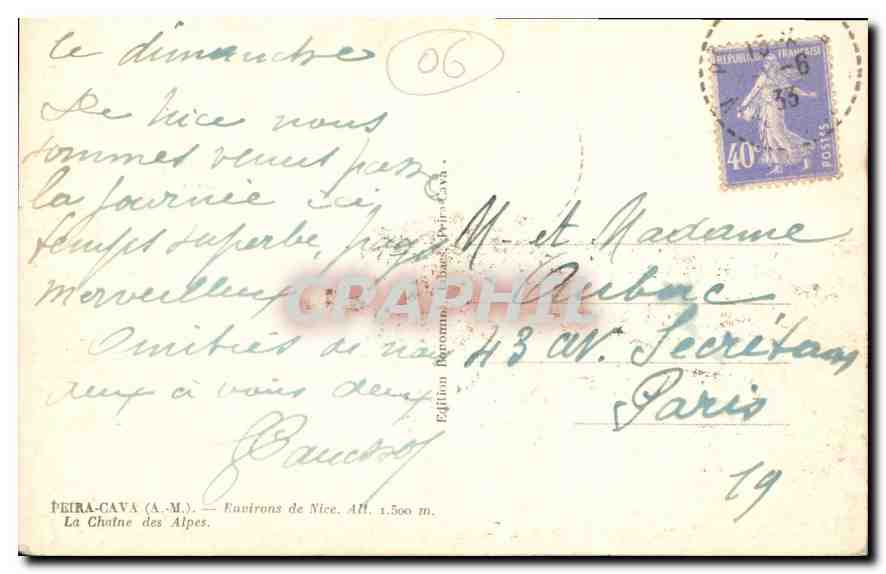 le dimanche
06
De Nice nous
sommes venus passer
la journée ici
temps superbe, pays
merveilleux
Amitiés de nous
deux à vous deux
PEIRA-CAVA (A.-M.). — Environs de Nice. Alt. 1.500 m.
La Chaîne des Alpes.
Edition Tabacs, Peira-Cava
CPARHIL
REPUBLIQUE FRANÇAISE
40c
POSTES
-6
33
M- et Madame
Aubac
43 av. Secrétan
Paris
19